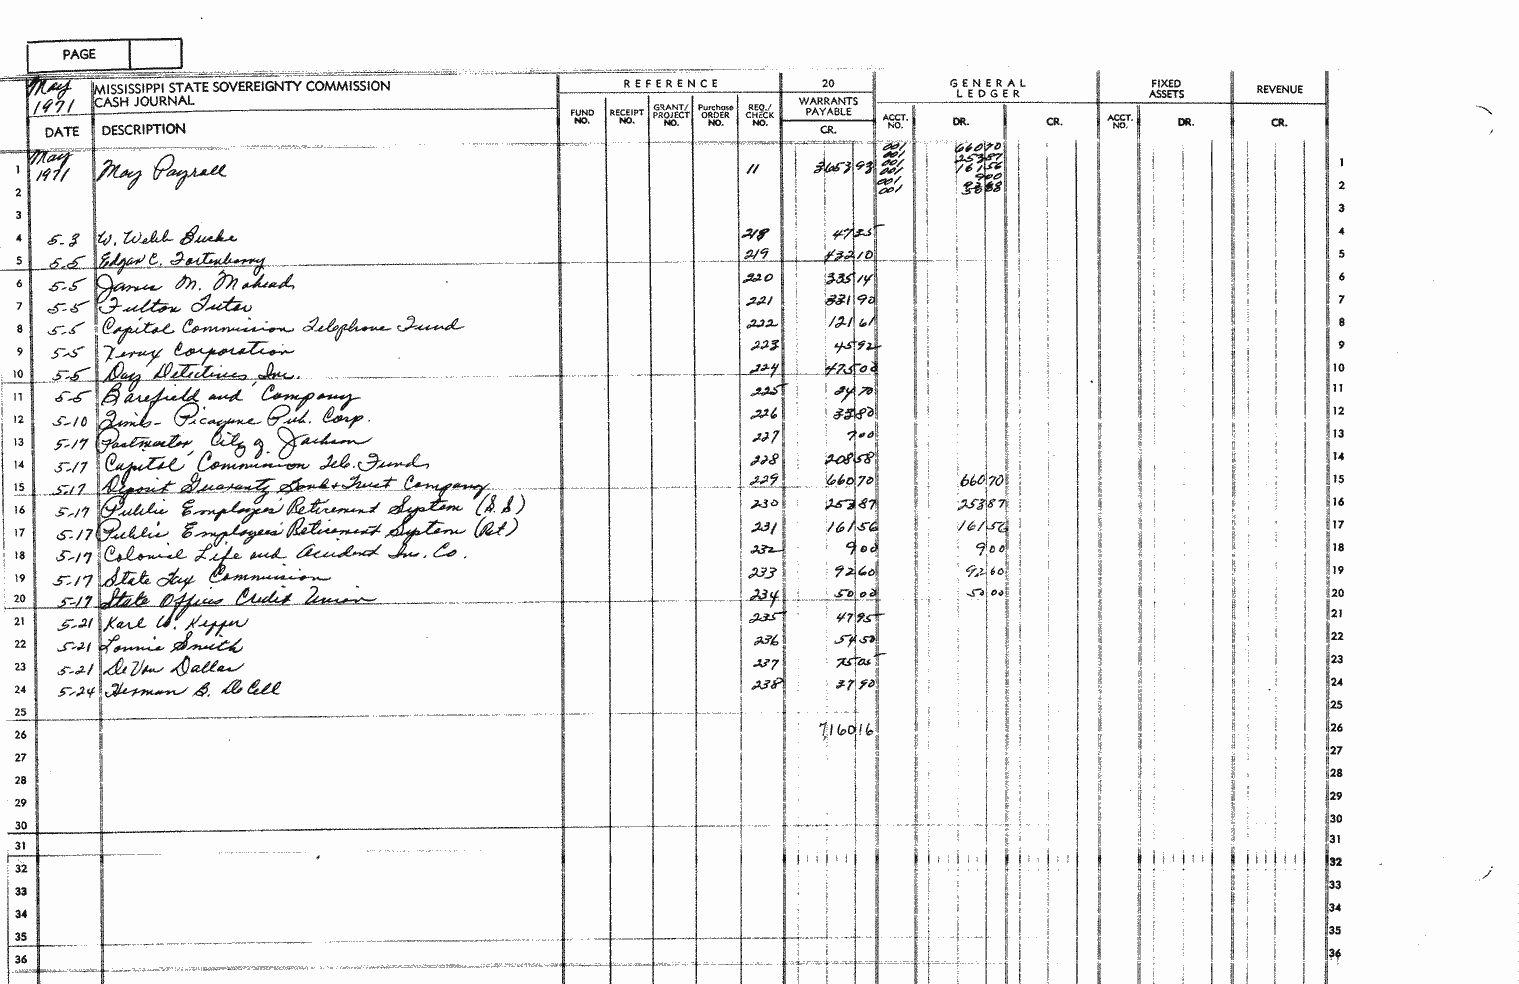 PAGE
May 1971 MISSISSIPPI STATE SOVEREIGNTY COMMISSION CASH JOURNAL
REFERENCE 20 GENERAL LEDGER FIXED ASSETS REVENUE
DATE DESCRIPTION FUND NO. RECEIPT NO. GRANT/PROJECT NO. Purchase ORDER NO. REQ./CHECK NO. WARRANTS PAYABLE CR. ACCT. NO. DR. CR. ACCT. NO. DR. CR.
001 66070
001 25387
1 May 1971 May Payroll 11 365393 001 16156 1
001 900
2 001 2
001
3 3
4 5-3 W. Webb Burke 218 4735 4
5 5-5 Edgar C. Fortenberry 219 43210 5
6 5-5 James M. Mohead 220 33514 6
7 5-5 Fulton Tutor 221 33190 7
8 5-5 Capitol Commission Telephone Fund 222 12161 8
9 5-5 Xerox Corporation 223 4592 9
10 5-5 Day Detectives, Inc. 224 47500 10
11 5-5 Barefield and Company 225 2470 11
12 5-10 Times-Picayune Pub. Corp. 226 3380 12
13 5-17 Postmaster, City of Jackson 227 700 13
14 5-17 Capitol Commission Tele. Fund 228 20858 14
15 5-17 Deposit Guaranty Bank & Trust Company 229 66070 66070 15
16 5-17 Public Employees' Retirement System (S.S) 230 25387 25387 16
17 5-17 Public Employees' Retirement System (Ret) 231 16156 16156 17
18 5-17 Colonial Life and Accident Ins. Co. 232 900 900 18
19 5-17 State Tax Commission 233 9260 9260 19
20 5-17 State Offices Credit Union 234 5000 5000 20
21 5-21 Karl W. Kepper 235 4795 21
22 5-21 Lonnie Smith 236 5450 22
23 5-21 DeVan Dallas 237 7505 23
24 5-24 Herman B. DeCell 238 3790 24
25 25
26 716016 26
27 27
28 28
29 29
30 30
31 31
32 32
33 33
34 34
35 35
36 36